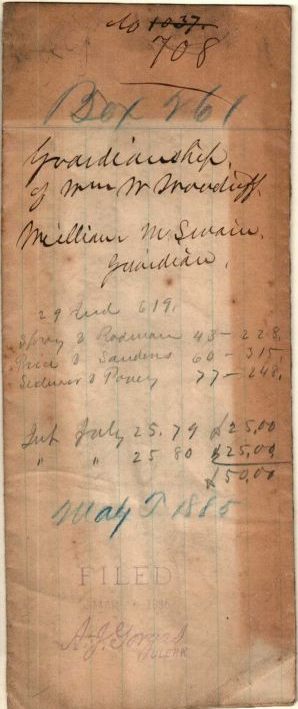 No 1037.
708
Box 261
Guardianship,
of Wm W Woodruff.
William M. Swain,
Guardian.
29 Ind 619.
& Rodman 43-228,
Price & Sanders 60-315,
77-248,
Int July 25. 79 $25,00
" " 25 80 $25,00
$50,00
May T 1885
FILED
A.J.
CLERK